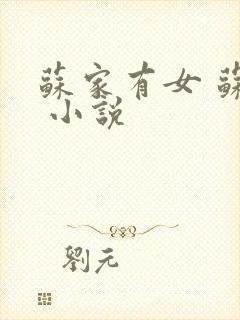 蘇家有女 蘇
小說
劉元